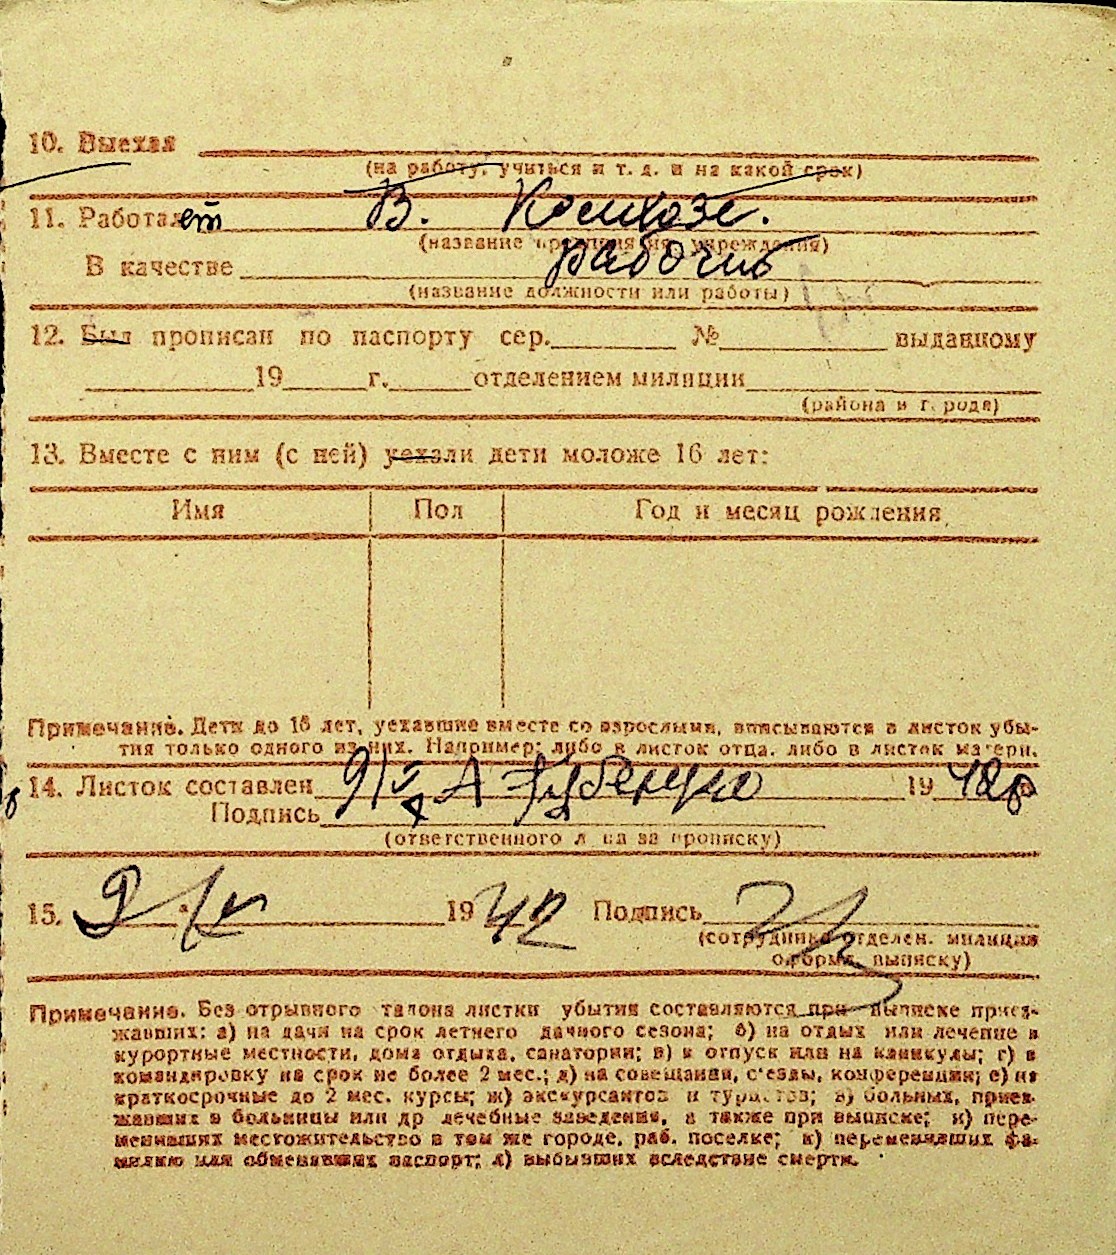 10. Выехал
(на работу, учиться и т. д. и на какой срок)
11. Работает В. Колхозе.
(название предприятия, учреждения)
В качестве рабочий
(название должности или работы)
12. Был прописан по паспорту сер. № выданному
19 г. отделением милиции
(района и города)
13. Вместе с ним (с ней) уехали дети моложе 16 лет:
Имя Пол Год и месяц рождения
Примечание. Дети до 16 лет, уехавшие вместе со взрослыми, вписываются в листок убы-
тия только одного из них. Например: либо в листок отца, либо в листок матери.
14. Листок составлен 9/X А 1942
Подпись
(ответственного лица за прописку)
15. 9/X 1942 Подпись
(сотрудника отделен. милиции
оформ. выписку)
Примечание. Без отрывного талона листки убытия составляются при выписке приез-
жавших: а) на дачи на срок летнего дачного сезона; б) на отдых или лечение в
курортные местности, дома отдыха, санатории; в) в отпуск или на каникулы; г) в
командировку на срок не более 2 мес.; д) на совещания, с'езды, конференции; е) на
краткосрочные до 2 мес. курсы; ж) экскурсантов и туристов; з) больных, приез-
жавших в больницы или др лечебные заведения, а также при выписке; и) пере-
менивших местожительство в том же городе, раб. поселке; к) переменивших фа-
милию или обменявших паспорт; л) выбывших вследствие смерти.